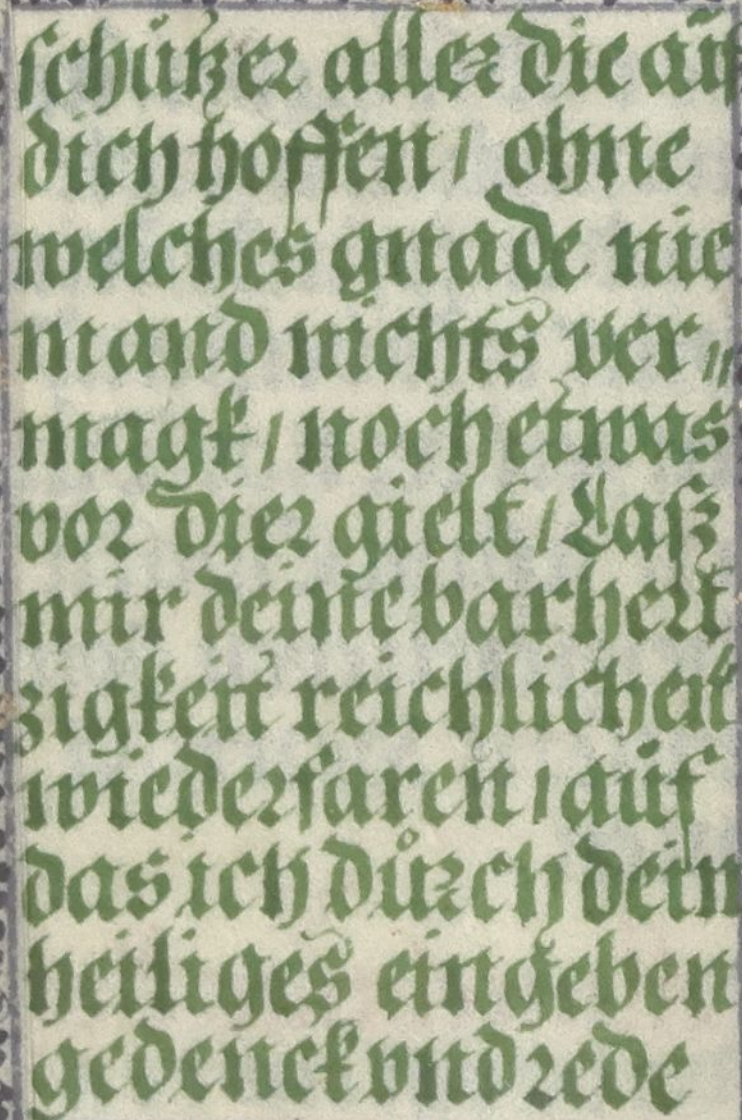 schützer aller die auf
dich hoffen / ohne
welches gnade nie
mand nichts ver„
magk / noch etwas
vor dier gielt / Lasz
mir deine barhertz
zigkeit reichlichen
wiederfaren / auf
das ich důrch dein
heiliges eingeben
gedenck vnd rede